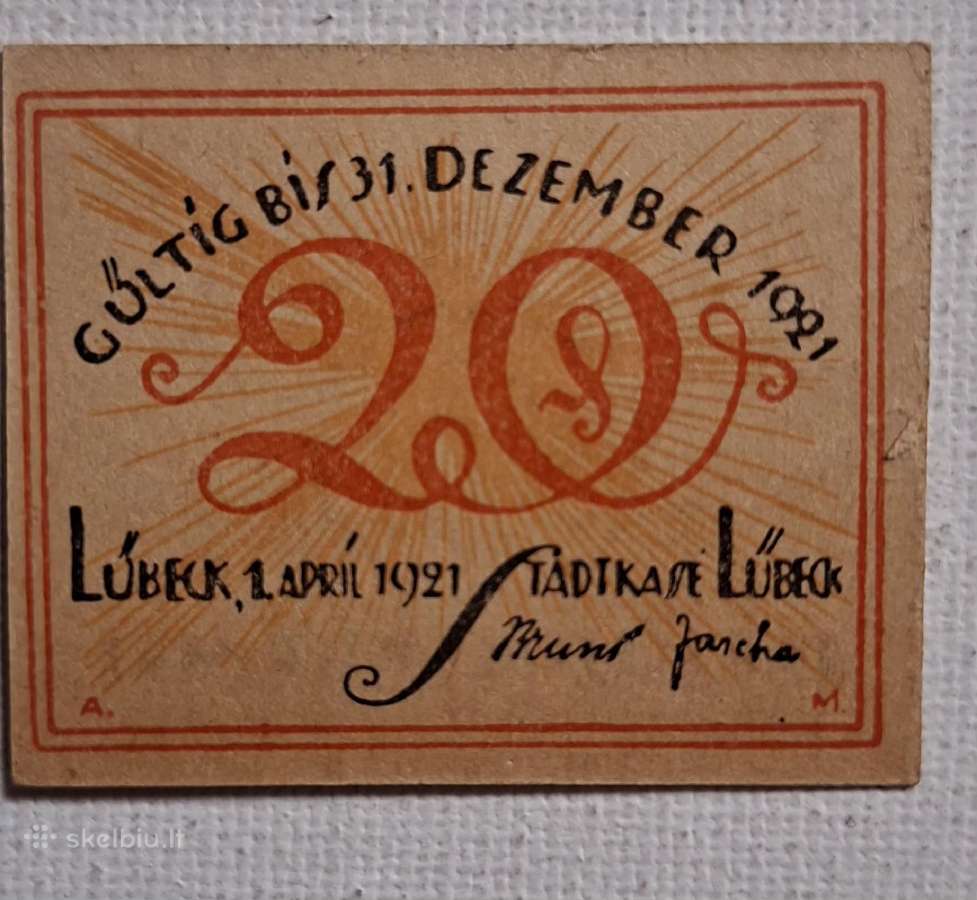 GÜLTIG BIS 31. DEZEMBER 1921
20
LÜBECK, 1. APRIL 1921 STADTKASSE LÜBECK
Bruns Jascha
A. M.
skelbiu.lt